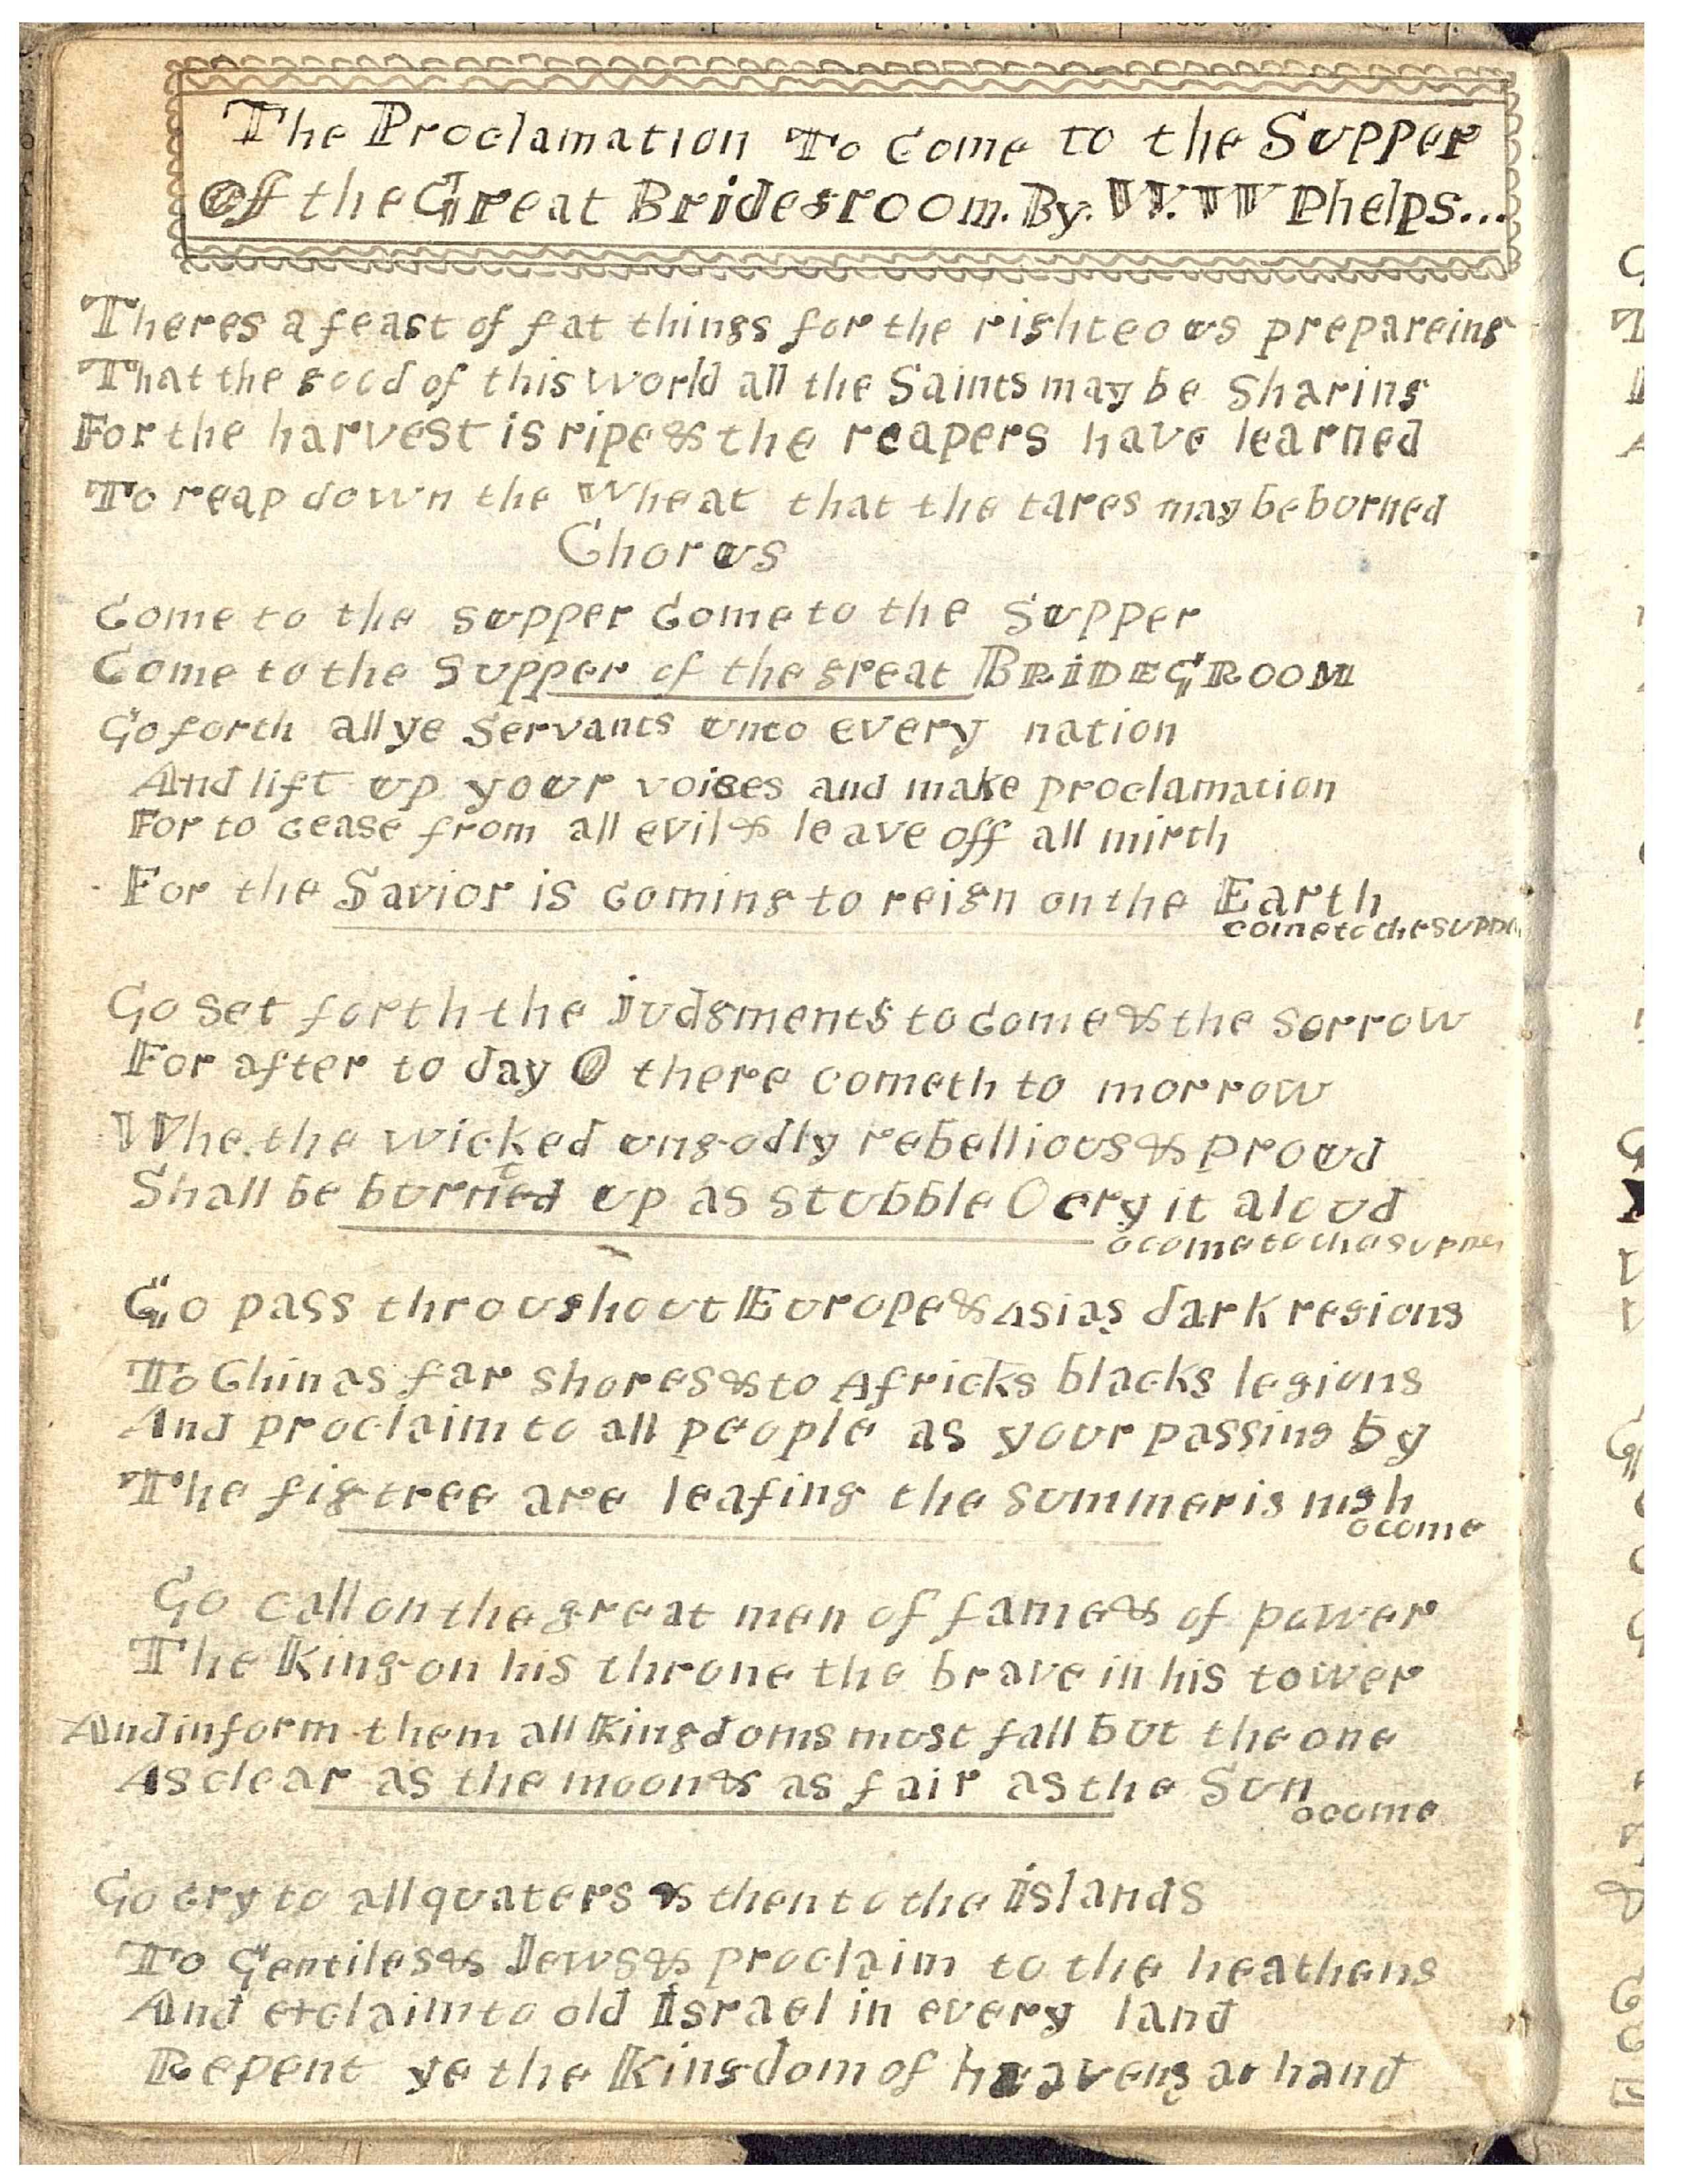 The Proclamation To Come to the Supper
Of the Great Bridegroom. By. W. W Phelps...
Theres a feast of fat things for the righteous prepareing
That the good of this world all the Saints may be Sharing
For the harvest is ripe & the reapers have learned
To reap down the Wheat that the tares may be burned
Chorus
Come to the supper Come to the Supper
Come to the Supper of the great BRIDEGROOM
Go forth all ye Servants unto every nation
And lift up your voices and make proclamation
For to cease from all evil & leave off all mirth
For the Savior is coming to reign on the Earth
come to the supper
Go set forth the judgments to come & the sorrow
For after to day O there cometh to morrow
Whe. the wicked ungodly rebellious & proud
Shall be burned t up as stubble O cry it aloud
o come to the supper
Go pass throughout Europe & Asias dark regions
To Chinas far shores & to Africks blacks legions
And proclaim to all people as your passing by
The figtree are leafing the summer is nigh
o come
Go call on the great men of fame & of power
The King on his throne the brave in his tower
And inform them all Kingdoms must fall but the one
As clear as the moon & as fair as the Sun
o come
Go cry to all quaters & then to the islands
To Gentiles & Jews & proclaim to the heathens
And exclaim to old israel in every land
Repent ye the Kingdom of heavens at hand